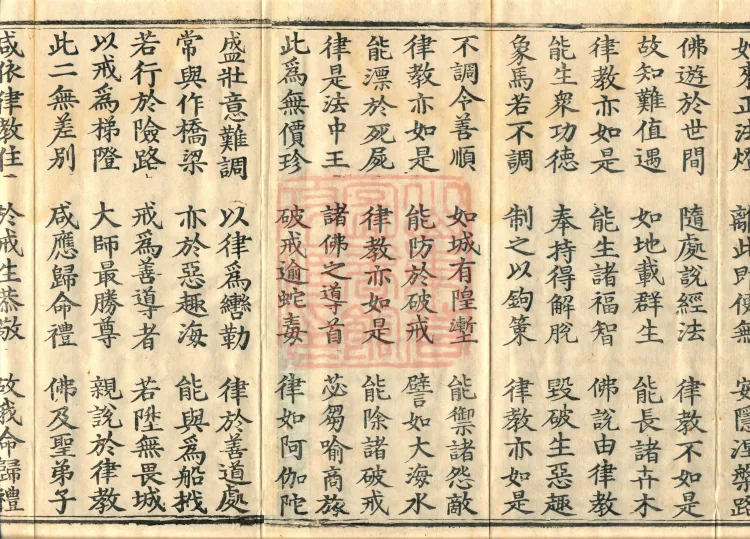 如來正法燈 離此即便無 安隱涅槃路
佛遊於世間 隨處說經法 律教不如是
故知難值遇 如地載群生 能長諸卉木
律教亦如是 能生諸福智 佛說由律教
能生眾功德 奉持得解脫 毀破生惡趣
象馬若不調 制之以鉤策 律教亦如是
不調令善順 如城有隍塹 能禦諸怨敵
律教亦如是 能防於破戒 譬如大海水
能漂於死屍 律教亦如是 能除諸破戒
律是法中王 諸佛之導首 苾芻喻商旅
此爲無價珍 破戒逾蛇毒 律如阿伽陀
盛壯意難調 以律爲轡勒 律於善道處
常與作橋梁 亦於惡趣海 能與爲船栰
若行於險路 戒爲善導者 若陞無畏城
以戒爲梯隥 大師最勝尊 親說於律教
此二無差別 咸應歸命禮 佛及聖弟子
咸依律教住 於戒生恭敬 故我命歸禮